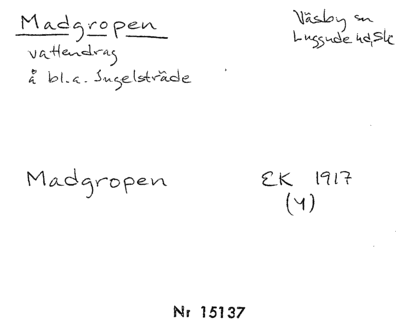 Madgropen
Väsby sn
Luggude hd, Sk
vattendrag
å bl.a. Ingelsträde
Madgropen
EK 1917
(4)
Nr 15137